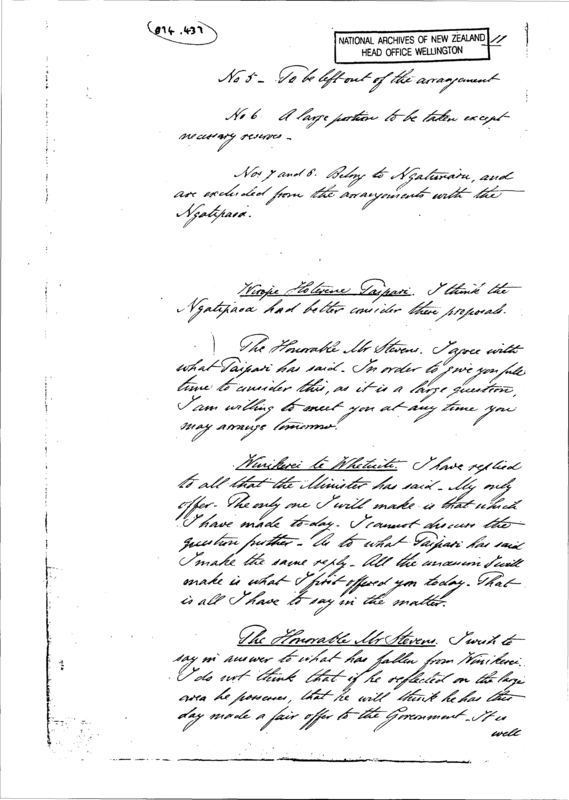 074.437
NATIONAL ARCHIVES OF NEW ZEALAND
HEAD OFFICE WELLINGTON
11
No 5 - To be left out of the arrangement
No 6 A large portion to be taken except
necessary reserves -
Nos 7 and 8. Belong to Ngatimaru, and
are excluded from the arrangements with the
Ngatipaoa.
Wirope Hoterene Taipari. I think the
Ngatipaoa had better consider these proposals.
The Honorable Mr Stevens. I agree with
what Taipari has said. In order to give you full
time to consider this, as it is a large question,
I am willing to meet you at any time you
may arrange tomorrow.
Winikerei te Whetuiti. I have replied
to all that the Minister has said - My only
offer - The only one I will make is that which
I have made to-day. I cannot discuss the
question further - As to what Taipari has said
I make the same reply - All the I will
make is what I first offered you today. That
is all I have to say in the matter.
The Honorable Mr Stevens. I wish to
say in answer to what has fallen from Winikerei.
I do not think that if he reflected on the large
area he possesses, that he will think he has this
day made a fair offer to the Government. It is
well